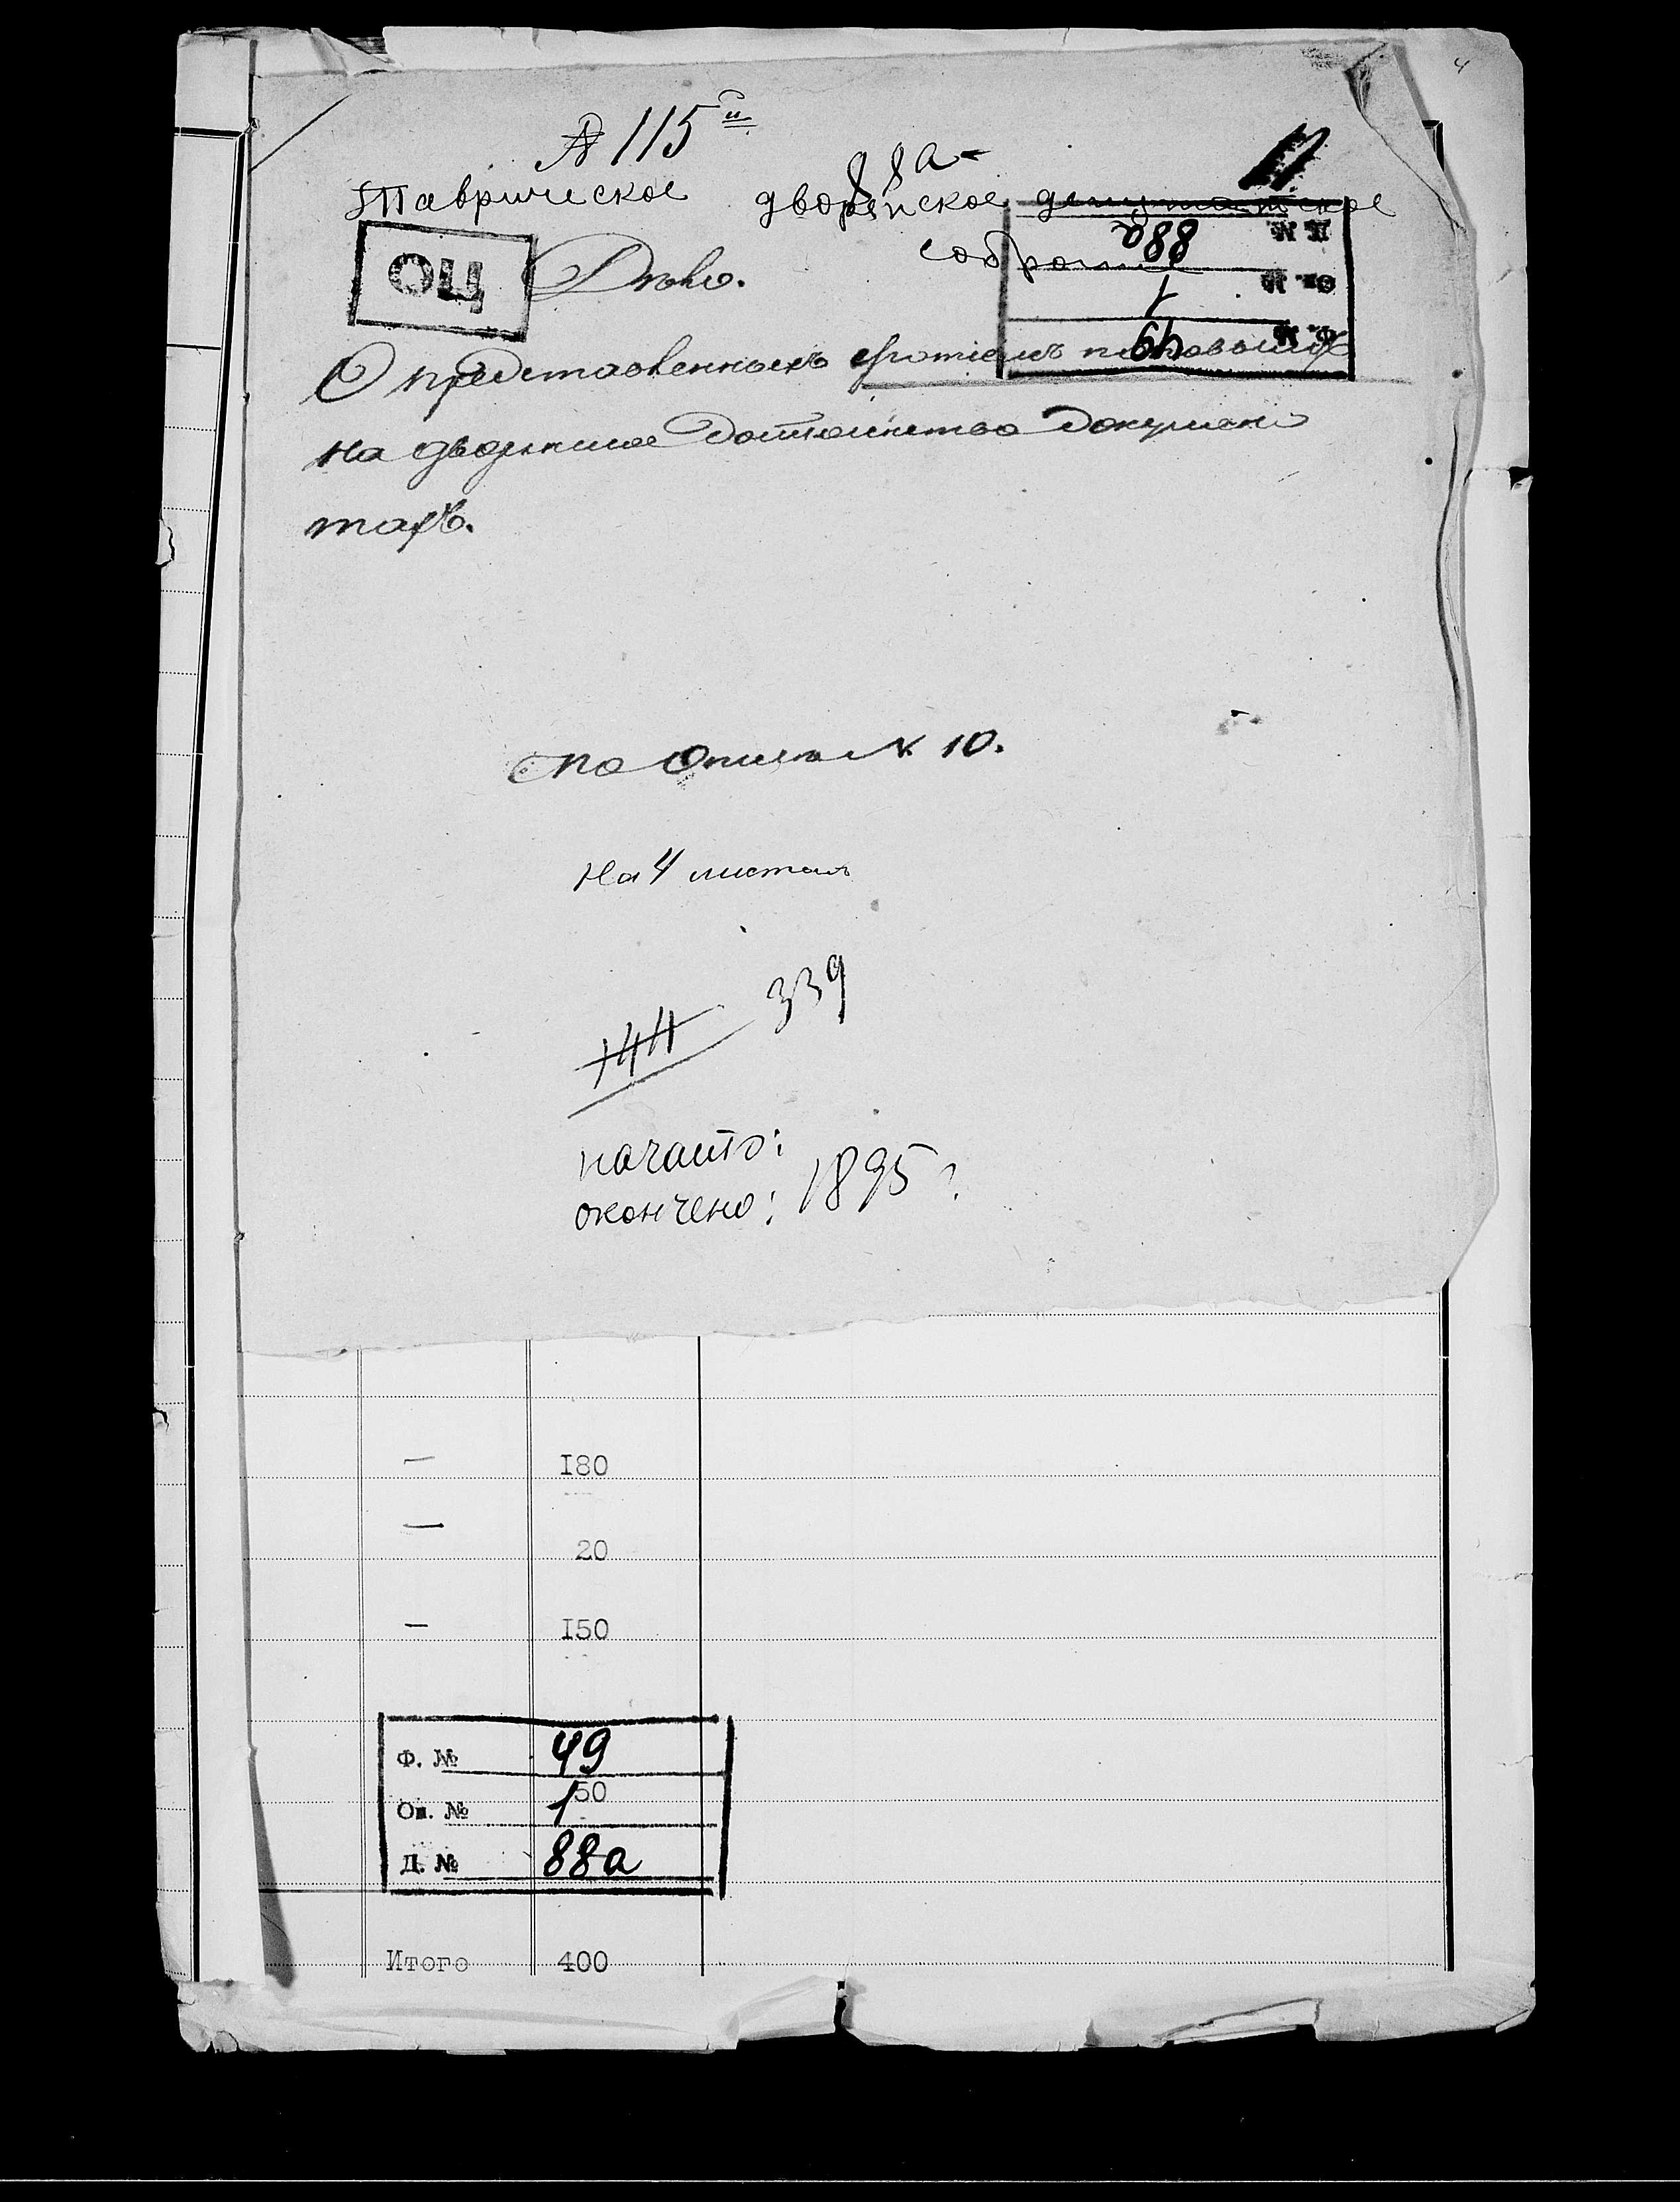 4
№ 115й
88а
Таврическое дворянское депутатское
собрание
ОЦ
Д. № 88а
Оп. № 1
Ф. № 49
Дѣло.
О представленныхъ
на дворянское достоинство докумен
тахъ.
По Описи № 10.
На 4 листахъ
339
144
начато:
окончено: 1895 г.
— 180
— 20
— 150
Ф. № 49
50
Оп. № 1
Д. № 88а
Итого 400